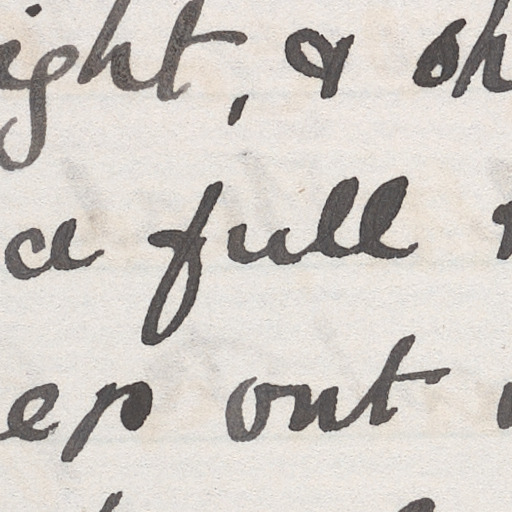 ight, & sh
a full
ep out